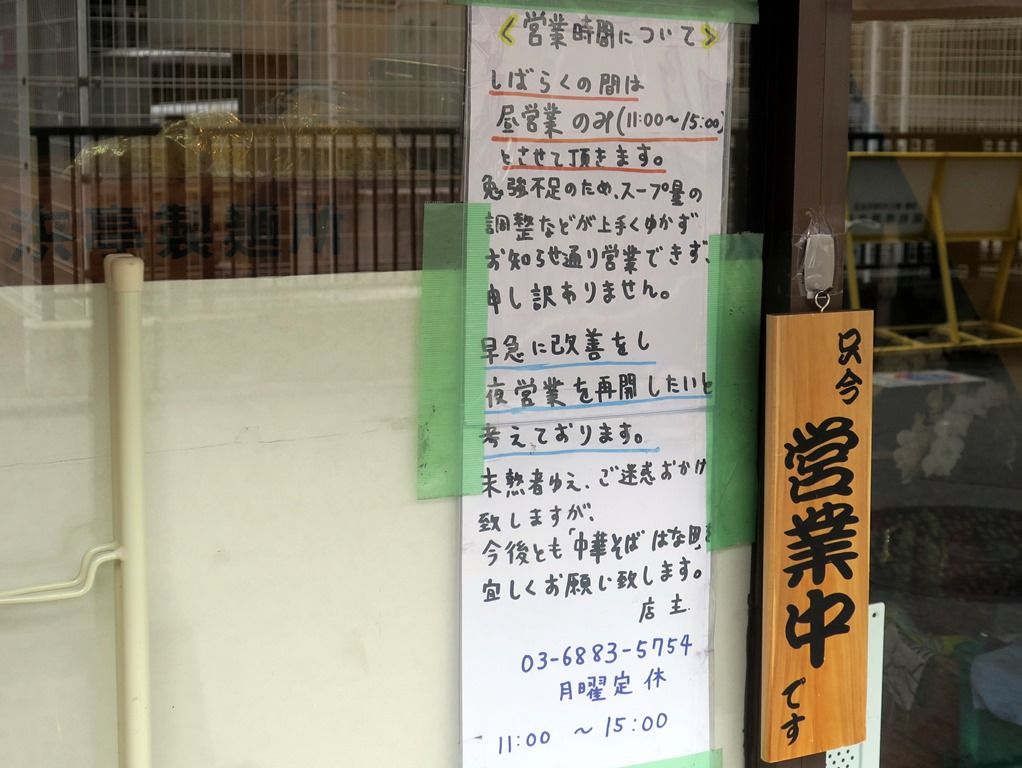 <営業時間について>
しばらくの間は
昼営業のみ(11:00〜15:00)
とさせて頂きます。
勉強不足のため、スープ量の
調整などが上手くゆかず
お知らせ通り営業できず、
申し訳ありません。
早急に改善をし
夜営業を再開したいと
考えております。
未熟者ゆえ、ご迷惑おかけ
致しますが、
今後とも「中華そば はな田」を
宜しくお願い致します。
店主
03-6883-5754
月曜定休
11:00 〜 15:00
只今
営業中
です
製麺所